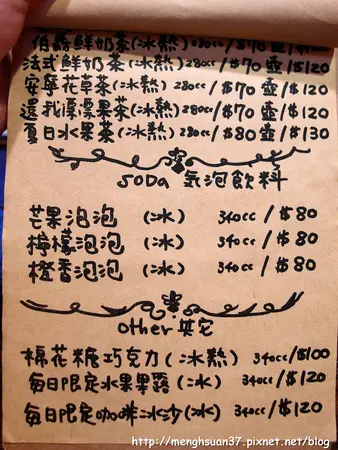 伯爵鮮奶茶(冰熱)280cc/$70 壺/$120
法式鮮奶茶(冰熱)280cc/$70 壺/$120
安寧花草茶(冰熱)280cc/$70 壺/$120
還我漂漂果茶(冰熱)280cc/$70 壺/$120
夏日水果茶(冰熱)280cc/$80 壺/$130
SODa 氣泡飲料
芒果泡泡 (冰) 340cc/$80
檸檬泡泡 (冰) 340cc/$80
橙香泡泡 (冰) 340cc/$80
other 其它
棉花糖巧克力(冰熱) 340cc/$100
每日限定水果果露(冰) 340cc/$120
每日限定咖啡冰沙(冰) 340cc/$120
http://menghsuan37.pixnet.net/blog